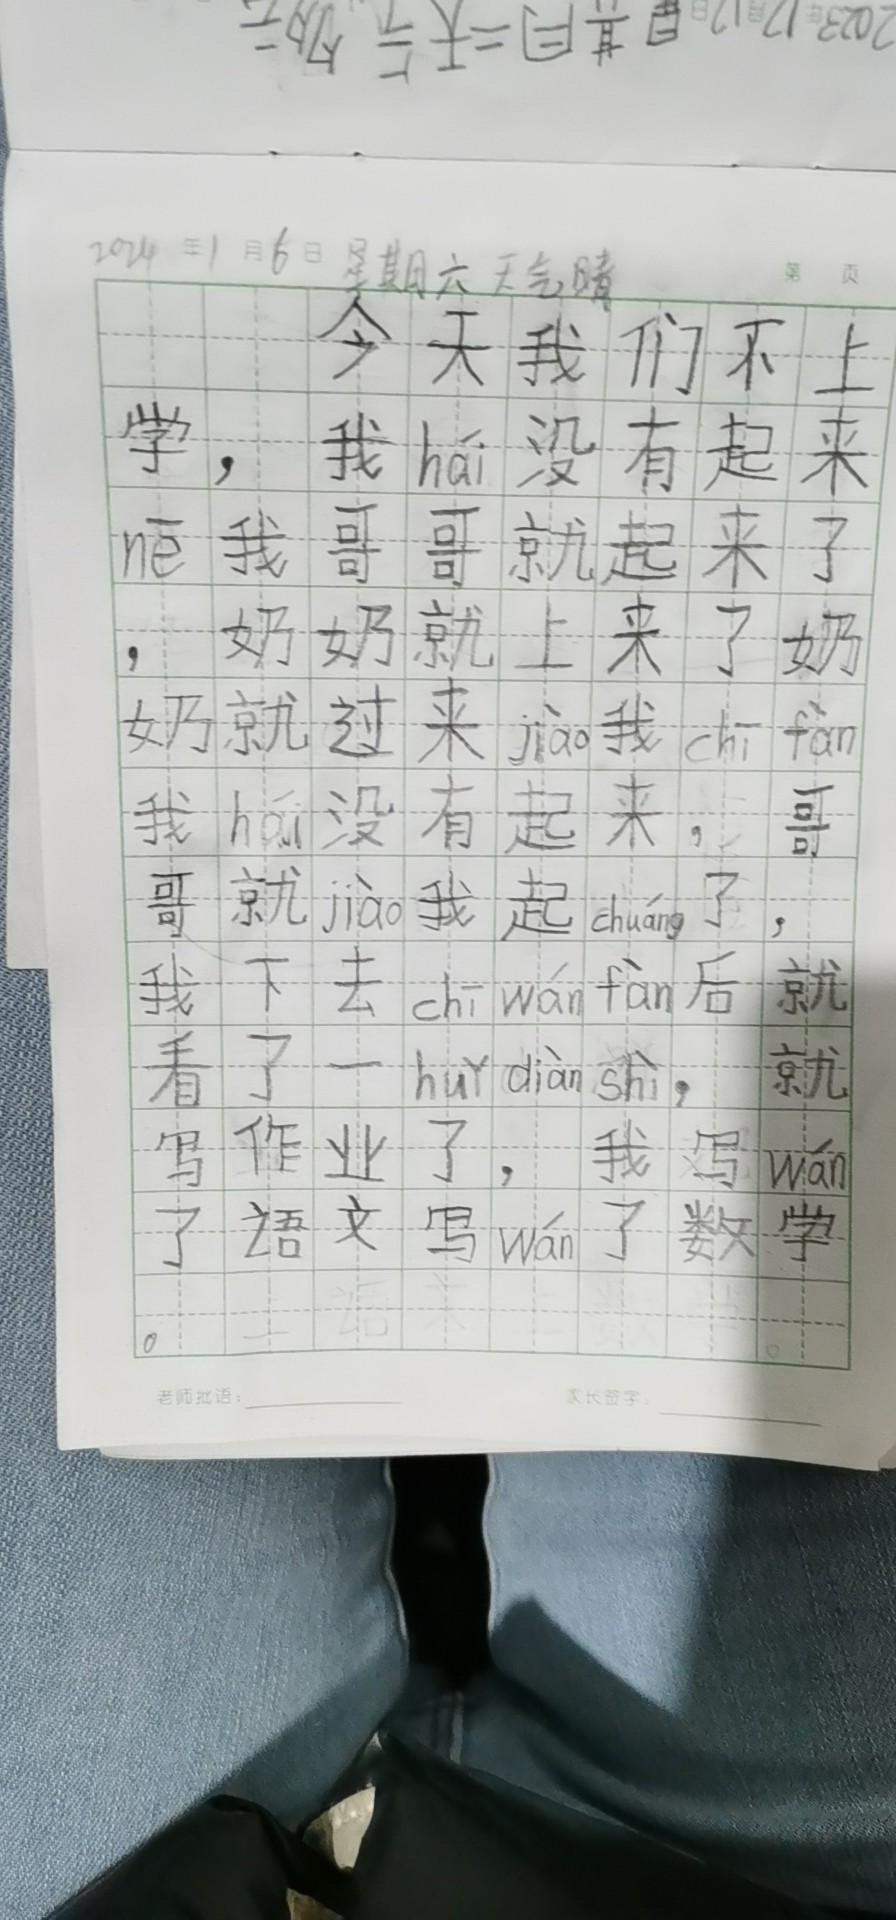 2023年12月17日
2024年1月6日 星期六 天气晴
第 页
今天我们不上
学，我hái没有起来
nē我哥哥就起来了
，奶奶就上来了奶
奶就过来jiào我chī fàn
我hái没有起来，哥
哥就jiào我起chuáng了，
我下去chī wán fàn后就
看了一huǐ diàn shì，就
写作业了，我写wán
了语文写wán了数学
。
老师批语：
家长签字：